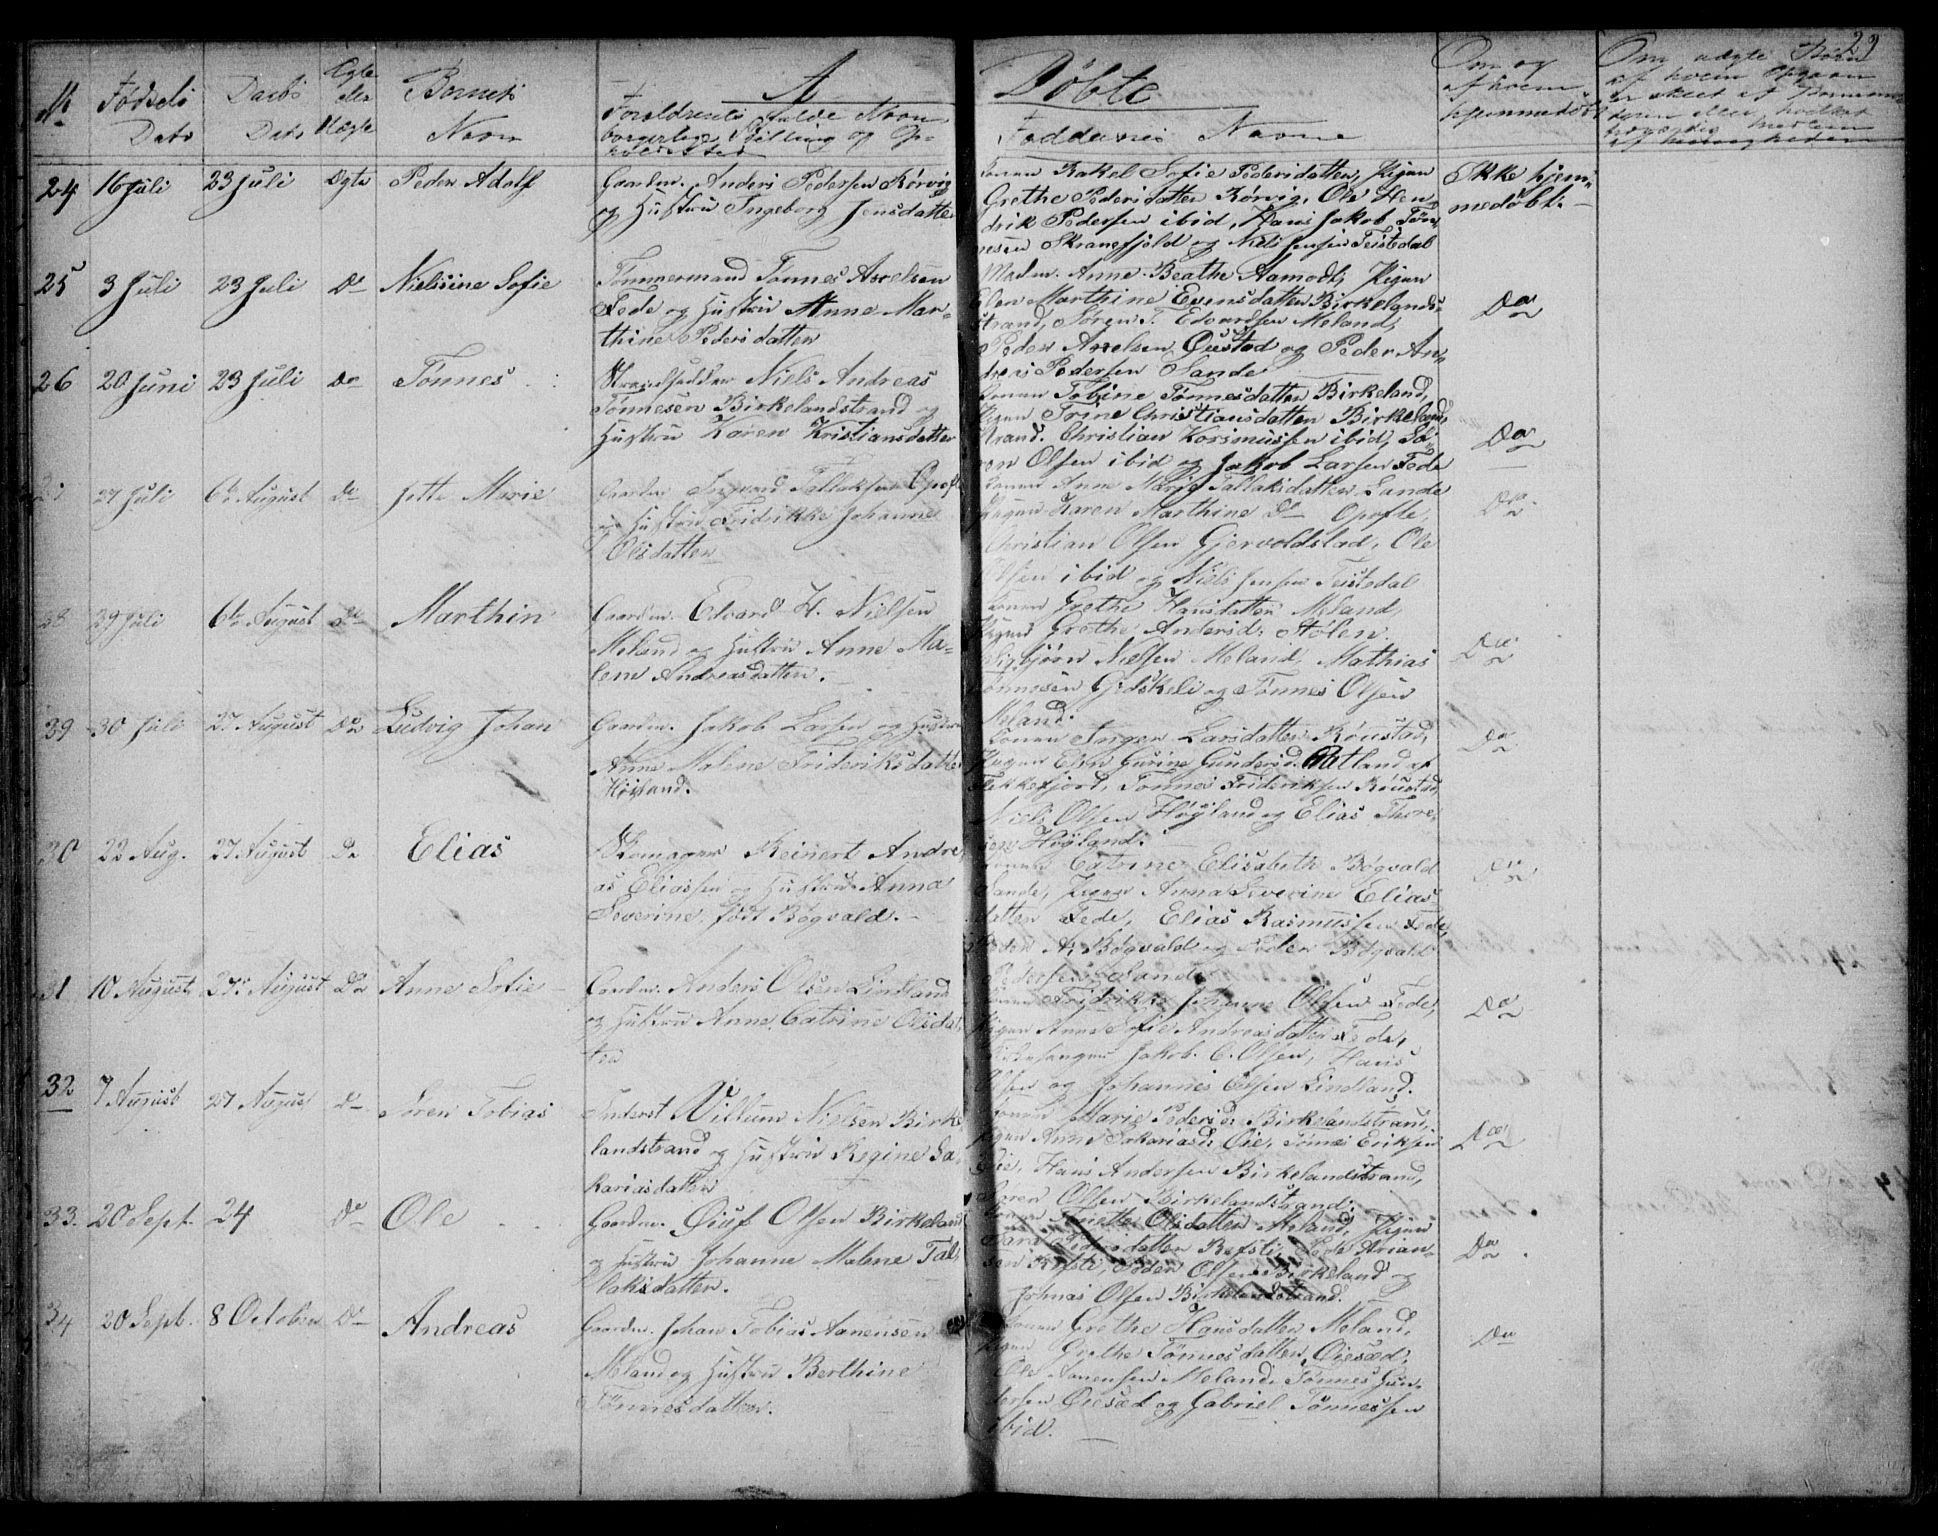 23
A Døbte
No Fødsels Dato Daabs Dato Ægte eller Uægte Barnets Navn
Forældrenes fulde Navn
borgerlige Stilling og Op-
holdssted
Faddernes Navne
Om og
af hvem
hjemmedøbt
Om uægte Børn
24 16 Juli 23 Juli Ægte Peder Adolf
Gaardm. Anders Pedersen Rørvig
og Hustru Ingeborg Jensdatter
Konen Rakel Sofie Pedersdatter, Pigen
Grethe Pedersdatter Rørvig, Ole Hen-
drik Pedersen ibid, Hans Jakob Tøn-
nesen Skranefjeld og Niels Jensen Teistedal
Ikke hjem-
medøbt.
25 3 Juli 23 Juli Do Nielsine Sofie
Tømmermand Tønnes Axelsen
Fede og Hustru Anne Mar-
thine Pedersdatter
Madm. Anne Beathe Aamodt, Pigen
Elen Marthine Evensdatter Birkelands-
strand, Søren T. Edvardsen Meland,
Peder Axelsen Øiestad og Peder An-
dreas Pedersen Sande
Do
26 20 Juni 23 Juli Do Tønnes
Strandsidder Niels Andreas
Tønnesen Birkelandstrand og
Hustru Karen Kristiansdatter
Konen Tobine Tønnesdatter Birkeland,
Pigen Trine Christiansdatter Birkeland-
strand. Christian Korsmussen ibid, Sø-
ren Olsen ibid og Jakob Larsen Fede
Do
27 27 Juli 6te August Do Jette Marie
Gaardm. Tallaksen
og Hustru Fridrikke Johanne
Olsdatter
Konen Anne Marie Tallaksdatter Sande
Pigen Karen Marthine Do Opofte,
Christian Olsen Gjervoldstad, Ole
Olsen ibid og Niels Jensen Teistedal
Do
28 29 Juli 6te August Do Marthin
Gaardm. Edvard H. Nielsen
Meland og Hustru Anne Ma-
lene Andreasdatter.
Konen Grethe Hansdatter Meland,
Pigen Grethe Andersd: Stølen.
Sigbjørn Nielsen Meland, Mathias
Tønnesen Gidskeli og Tønnes Olsen
Meland.
Do
29 30 Juli 27 August Do Ludvig Johan
Gaardm. Jakob Larsen og Hustru
Anne Malene Frideriksdatter
Høyland.
Konen Inger Larsdatter Røustad,
Pigen Elen Gurine Gundersd. Øtland af
Flekkefjord, Tønnes Frideriksen Røustad,
Niels Olsen Høyland og Elias Thore-
sen Høyland.
Do
30 22 Aug. 27 August Do Elias
Skomager Reinert Andre-
as Eliassen og Hustru Anna
Severine, født Bøgvald.
Konen Catrine Elisabeth Bøgvald
Sande, Pigen Anna Severine Elias-
datter Fede, Elias Rasmussen Fede,
Peder A. Bøgvald og Peder Bøgvald
Pedersen Sande
Do
31 10 August 27de August Do Anne Sofie
Gaardm. Anders Olsen Lindland
og Hustru Anne Catrine Olsdat-
ter
Konen Fridrikke Johanne Olsen Fede,
Pigen Anne Sofie Andreasdatter Fede,
Kirkesanger Jakob C. Olsen, Hans
Olsen og Johannes Olsen Lindland.
Do
32 7 August 27 August Do Søren Tobias
Inderst Villum Nielsen Birke-
landstrand og Hustru Regine Sa-
kariasdatter
Konen Marie Pedersd: Birkelandstrand,
Pigen Anne Sakariasd: Øie, Tønnes Eriksen
Øie, Hans Andersen Birkelandstrand,
Søren Olsen Birkelandstrand.
Do
33. 20 Sept. 24 Do Ole
Gaardm. Olsen Birkeland
og Hustru Johanne Malene Tal-
laksdatter.
Konen Olsdatter Meland, Pigen
Pedersdatter Refsti, Arian-
sen Refsti, Peder Olsen Birkeland og
Johnas Olsen Birkelandstrand.
Do
34 20 Sept. 8 October Do Andreas
Gaardm. Johan Tobias Aanensen
Meland og Hustru Berthine
Tønnesdatter.
Konen Grethe Hansdatter Meland,
Pigen Grethe Tønnesdatter Øiesæd,
Ole Aanensen Meland, Tønnes Gun-
dersen Øiesæd og Gabriel Tønnessen
ibid.
Do